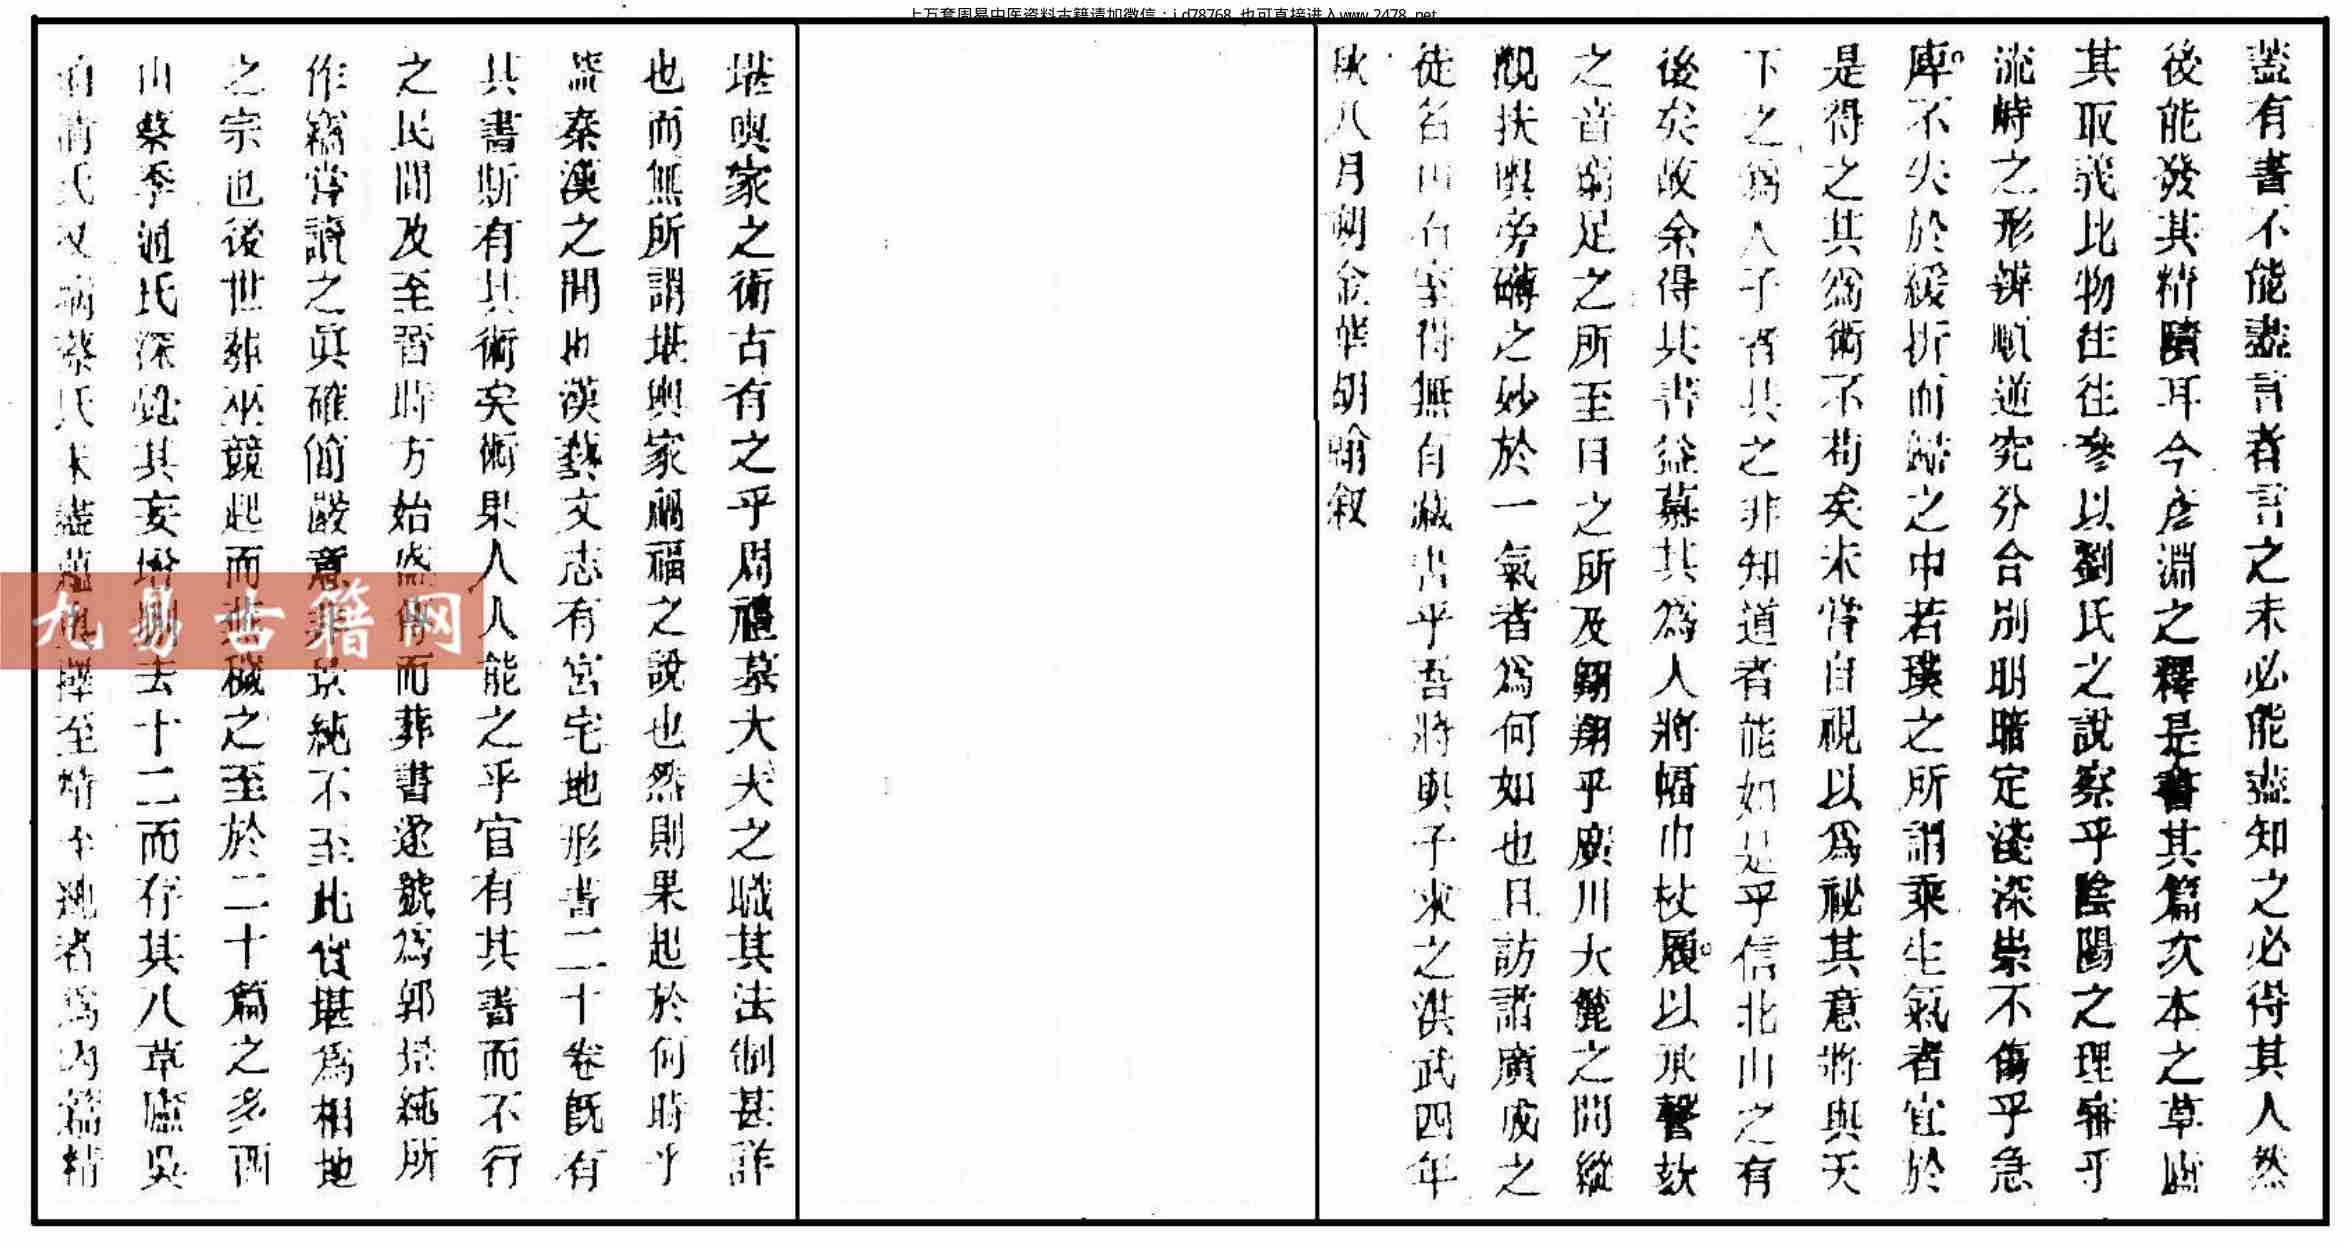 上万套周易中医资料古籍请加微信:j.d78768 也可直接进入www.2478.net
蓋有書不能盡言者言之未必能盡知之必得其人然
後能發其精賾耳今彥淵之釋是書其篇次本之草廬
其取義比物往往參以劉氏之說察乎陰陽之理審乎
流峙之形辨順逆究分合別明暗定淺深崇不傷乎急
庳不失於緩折而歸之中若璞之所謂乘生氣者宜於
是得之其爲術不苟矣未嘗自視以爲祕其意將與天
下之爲人子者共之非知道者能如是乎信北山之有
後矣故余得其書益慕其為人將幅巾杖履以承謦欬
之音窮足之所至目之所及翱翔乎廣川大麓之間縱
觀扶輿旁礴之妙於一氣者爲何如也日訪諸廣成之
徒名山石室得無自藏書乎吾將與子求之洪武四年
秋八月朔金華胡翰叙
堪輿家之術古有之乎周禮墓大夫之職其法制甚詳
也而無所謂堪輿家禍福之說也然則果起於何時乎
蓋秦漢之間也漢藝文志有宮宅地形書二十卷既有
其書斯有其術矣術果人人能之乎官有其書而不行
之民間及至晉時方始盛傳而葬書遂號爲郭景純所
作竊嘗讀之真確簡嚴意非景純不至此實堪爲相地
之宗也後世葬巫競起而蕪穢之至於二十篇之多西
山蔡季通氏深覺其妄增删去十二而存其八草廬吳
伯清氏又病蔡氏未盡蘊奧擇至精至純者爲内篇精
九易古籍网